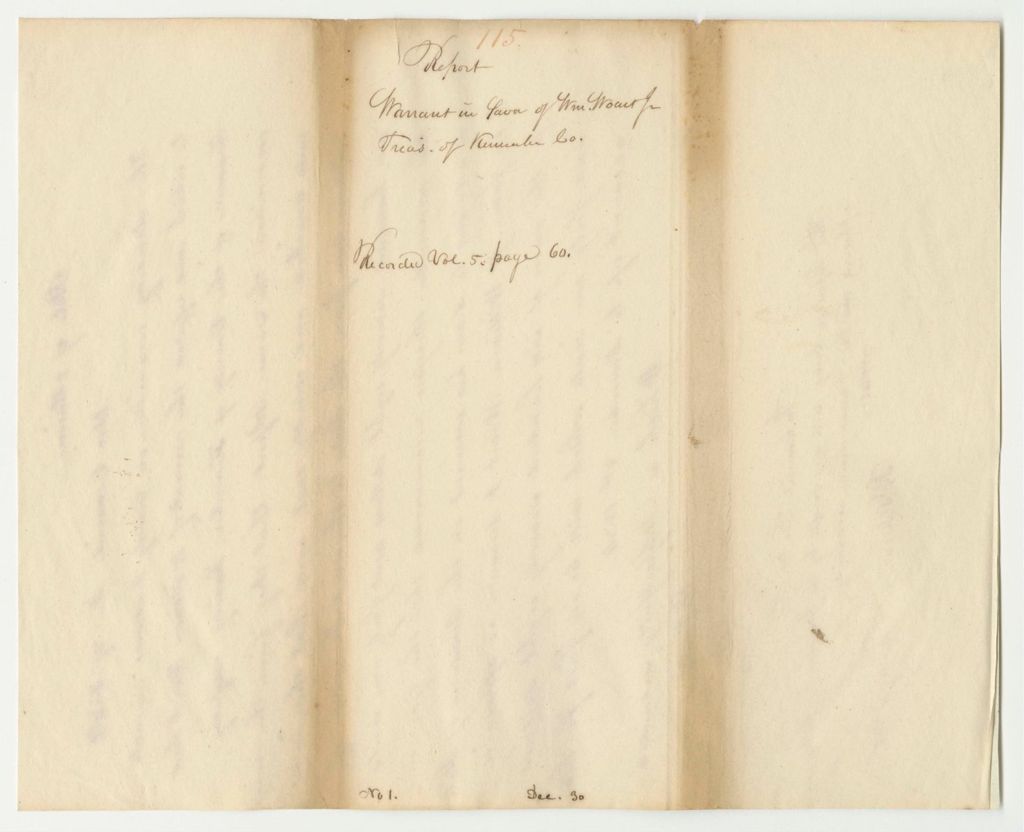 115.
Report
Warrant in favor of Wm. Woart Jr
Treas. of Kennebec Co.
Recorded Vol. 5. page 60.
No 1. Dec. 30